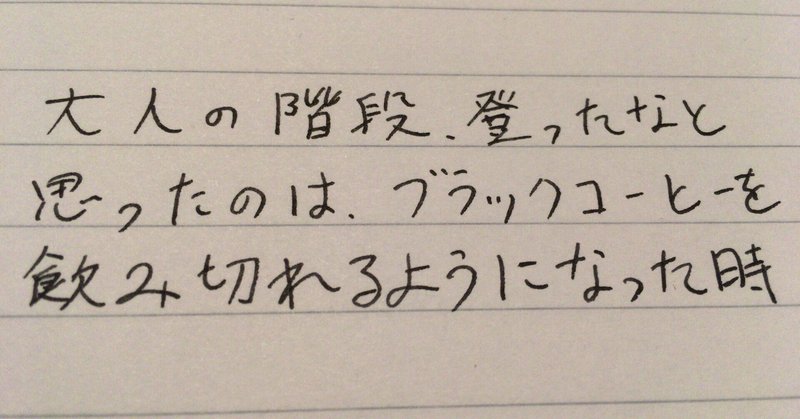 大人の階段、登ったなと
思ったのは、ブラックコーヒーを
飲み切れるようになった時